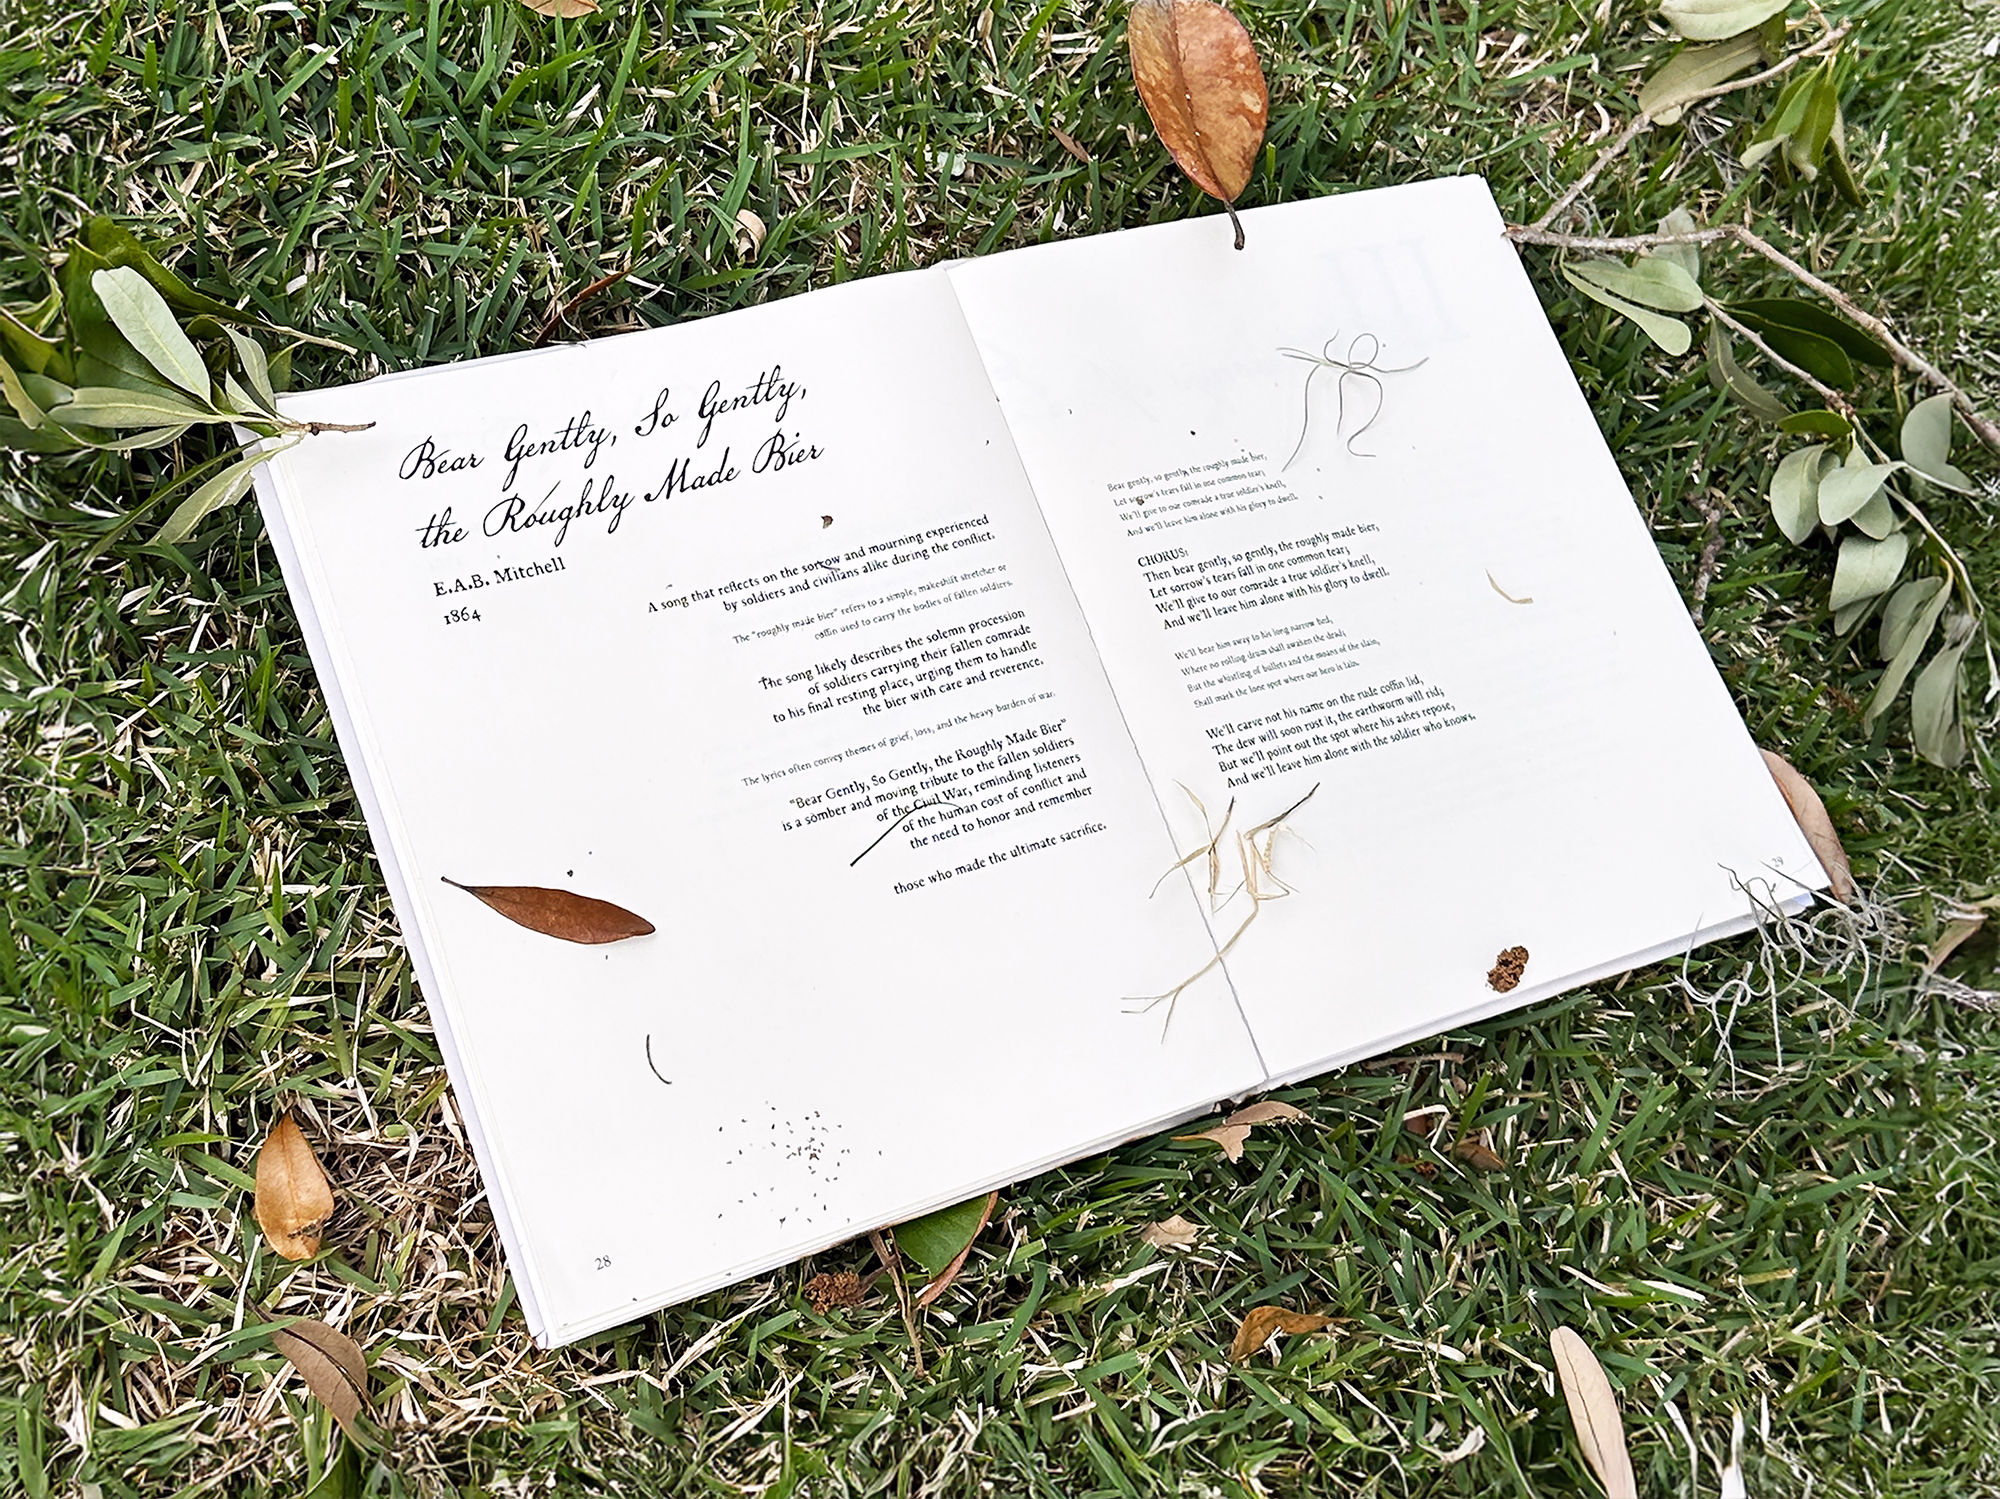 Bear Gently, So Gently,
the Roughly Made Bier
E.A.B. Mitchell
1864
A song that reflects on the sorrow and mourning experienced
by soldiers and civilians alike during the conflict.
The "roughly made bier" refers to a simple, makeshift stretcher or
coffin used to carry the bodies of fallen soldiers.
The song likely describes the solemn procession
of soldiers carrying their fallen comrade
to his final resting place, urging them to handle
the bier with care and reverence.
The lyrics often convey themes of grief, loss, and the heavy burden of war.
"Bear Gently, So Gently, the Roughly Made Bier"
is a somber and moving tribute to the fallen soldiers
of the Civil War, reminding listeners
of the human cost of conflict and
the need to honor and remember
those who made the ultimate sacrifice.
28
Bear gently, so gently, the roughly made bier,
Let sorrow's tears fall in one common tear;
We'll give to our comrade a true soldier's knell,
And we'll leave him alone with his glory to dwell.
CHORUS:
Then bear gently, so gently, the roughly made bier,
Let sorrow's tears fall in one common tear;
We'll give to our comrade a true soldier's knell,
And we'll leave him alone with his glory to dwell.
We'll bear him away to his long narrow bed,
Where no rolling drum shall awaken the dead;
But the whistling of bullets and the moans of the slain,
Shall mark the lone spot where our hero is lain.
We'll carve not his name on the rude coffin lid,
The dew will soon rust it, the earthworm will rid;
But we'll point out the spot where his ashes repose,
And we'll leave him alone with the soldier who knows.
29